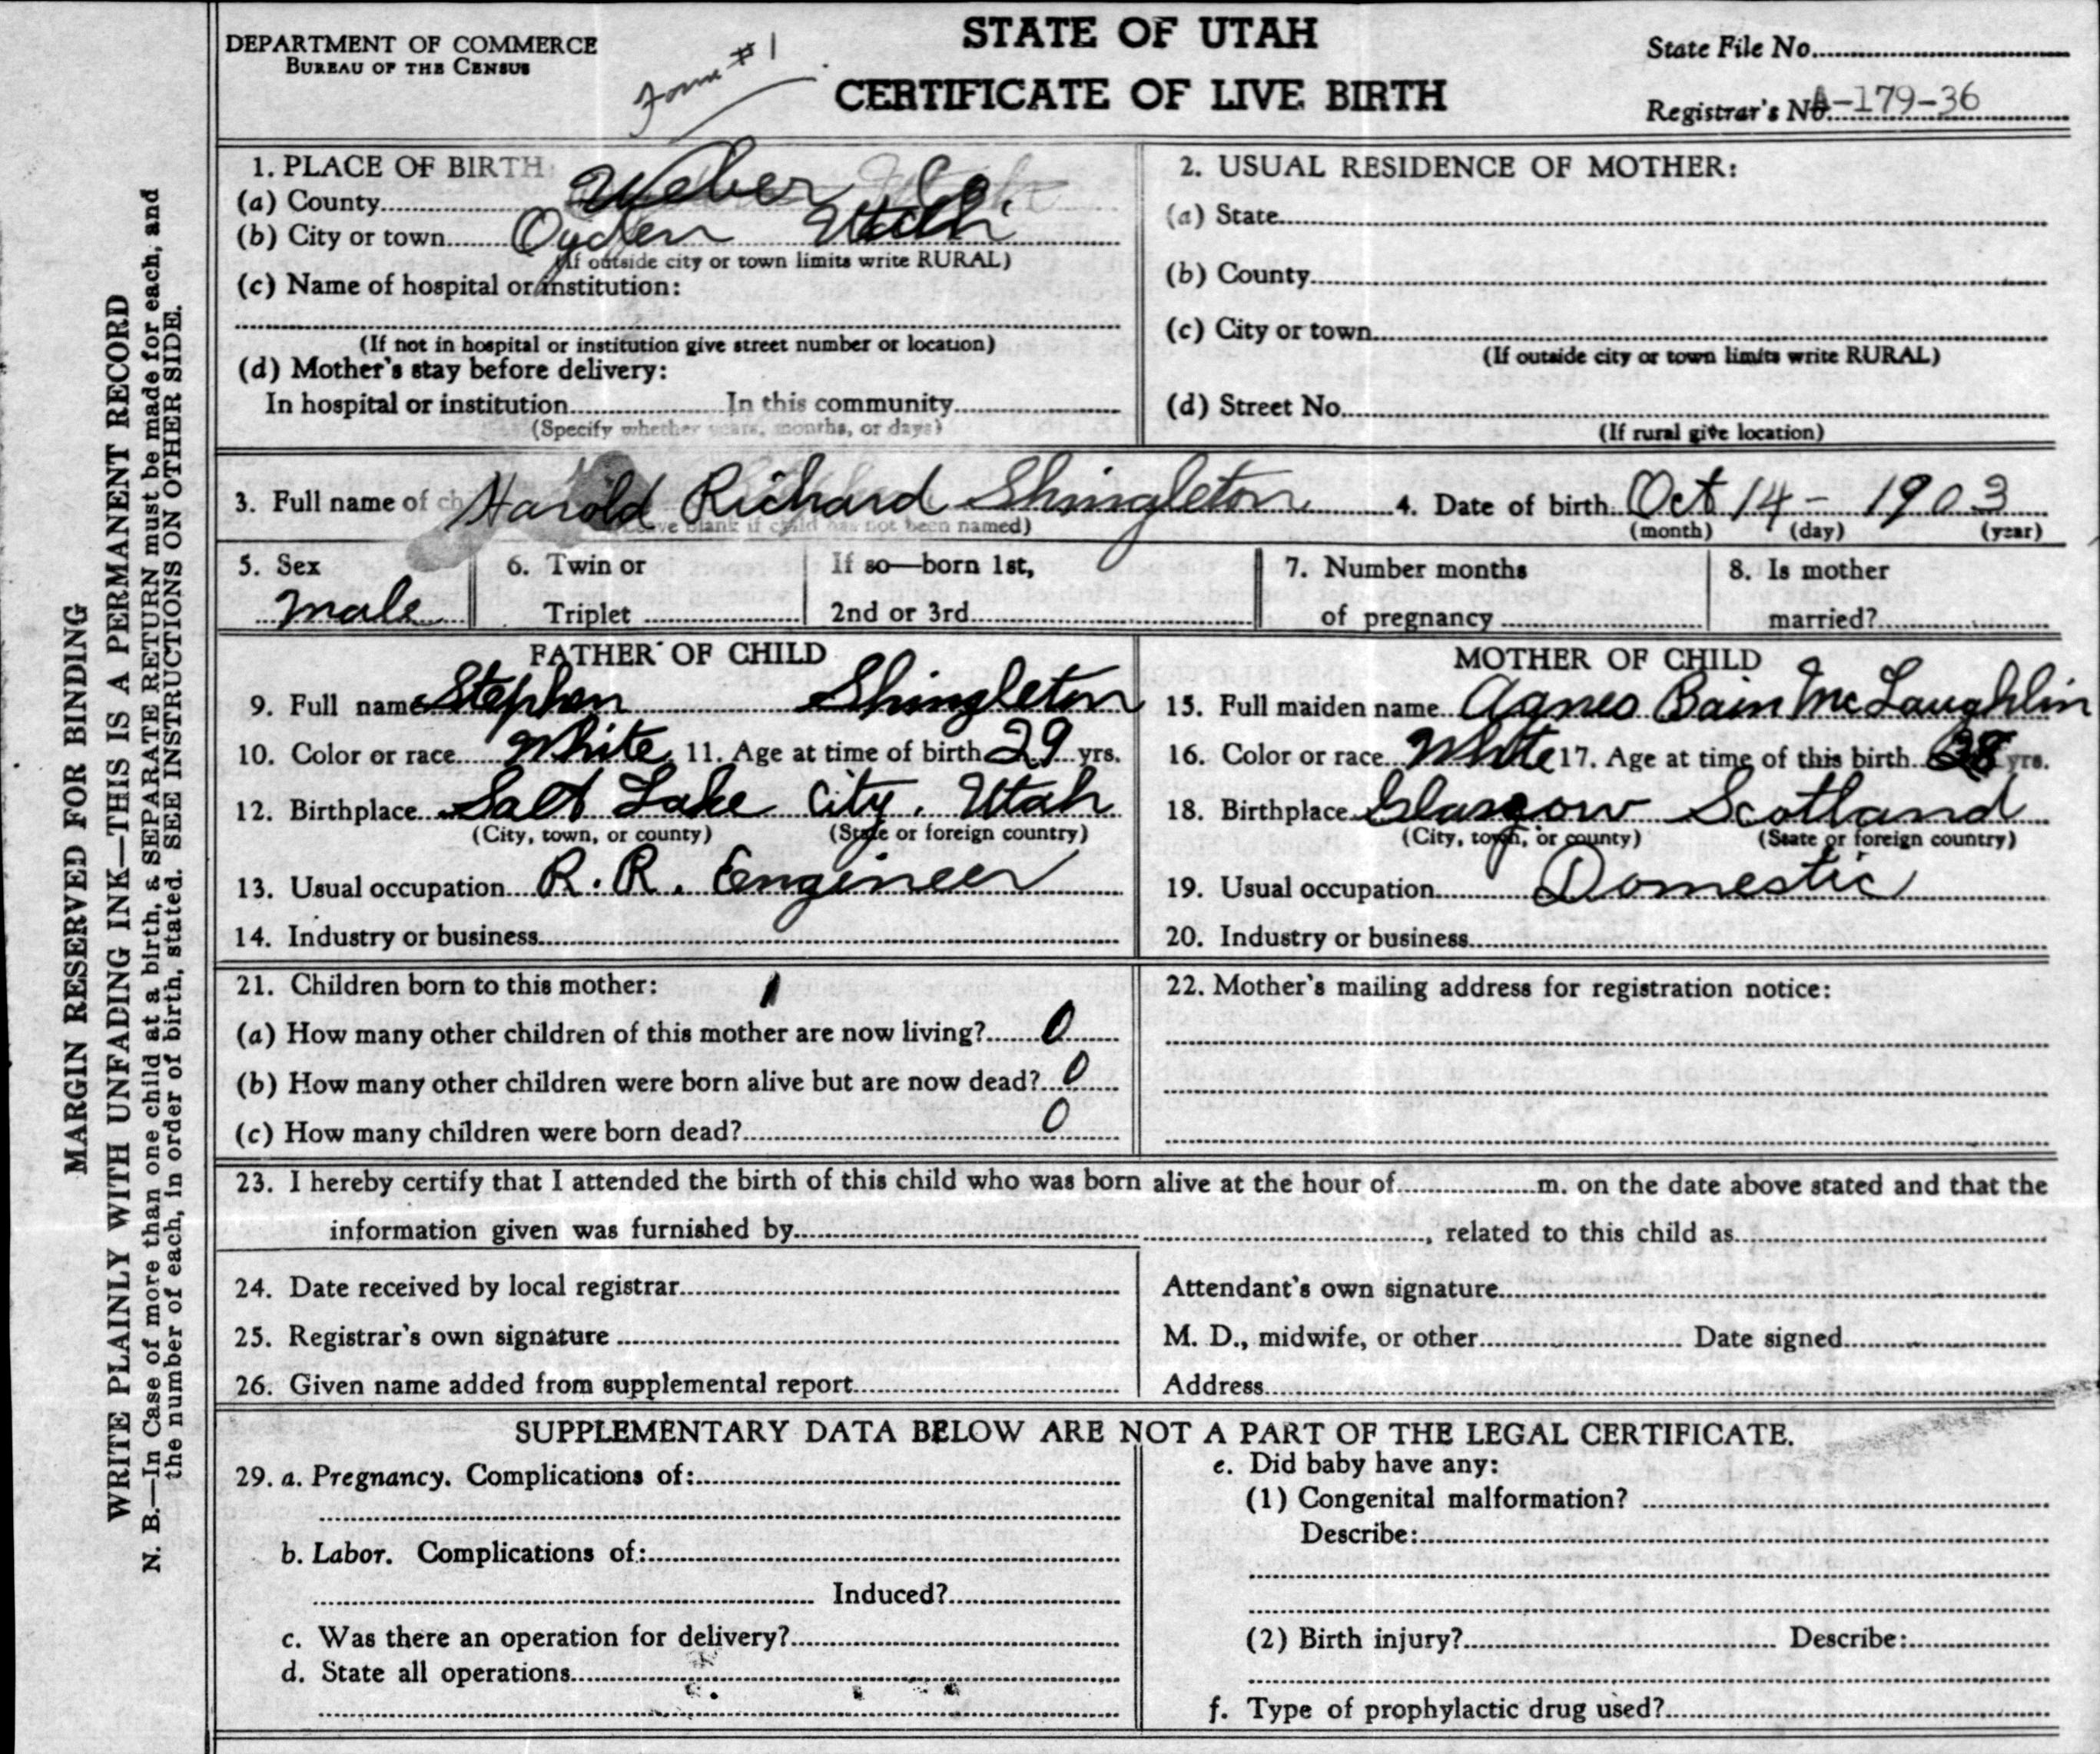 DEPARTMENT OF COMMERCE
BUREAU OF THE CENSUS
Form #1
STATE OF UTAH
CERTIFICATE OF LIVE BIRTH
State File No.
Registrar's No. A-179-36
MARGIN RESERVED FOR BINDING
WRITE PLAINLY WITH UNFADING INK—THIS IS A PERMANENT RECORD
N. B.—In Case of more than one child at a birth, a SEPARATE RETURN must be made for each, and
the number of each, in order of birth, stated. SEE INSTRUCTIONS ON OTHER SIDE.
1. PLACE OF BIRTH:
(a) County Weber Co
(b) City or town Ogden Utah
(If outside city or town limits write RURAL)
(c) Name of hospital or institution:
(If not in hospital or institution give street number or location)
(d) Mother's stay before delivery:
In hospital or institution In this community
(Specify whether years, months, or days)
2. USUAL RESIDENCE OF MOTHER:
(a) State
(b) County
(c) City or town
(If outside city or town limits write RURAL)
(d) Street No.
(If rural give location)
3. Full name of ch Harold Richard Shingleton 4. Date of birth Oct 14 - 1903
(Leave blank if child has not been named) (month) (day) (year)
5. Sex male
6. Twin or Triplet
If so—born 1st, 2nd or 3rd
7. Number months of pregnancy
8. Is mother married?
FATHER OF CHILD
9. Full name Stephen Shingleton
10. Color or race White 11. Age at time of birth 29 yrs.
12. Birthplace Salt Lake City, Utah
(City, town, or county) (State or foreign country)
13. Usual occupation R. R. Engineer
14. Industry or business
MOTHER OF CHILD
15. Full maiden name Agnes Bain McLaughlin
16. Color or race White 17. Age at time of this birth 28 yrs.
18. Birthplace Glasgow Scotland
(City, town, or county) (State or foreign country)
19. Usual occupation Domestic
20. Industry or business
21. Children born to this mother: 1
(a) How many other children of this mother are now living? 0
(b) How many other children were born alive but are now dead? 0
(c) How many children were born dead? 0
22. Mother's mailing address for registration notice:
23. I hereby certify that I attended the birth of this child who was born alive at the hour of m. on the date above stated and that the
information given was furnished by , related to this child as
24. Date received by local registrar
25. Registrar's own signature
26. Given name added from supplemental report
Attendant's own signature
M. D., midwife, or other Date signed
Address
SUPPLEMENTARY DATA BELOW ARE NOT A PART OF THE LEGAL CERTIFICATE.
29. a. Pregnancy. Complications of:
b. Labor. Complications of:
Induced?
c. Was there an operation for delivery?
d. State all operations
e. Did baby have any:
(1) Congenital malformation?
Describe:
(2) Birth injury? Describe:
f. Type of prophylactic drug used?